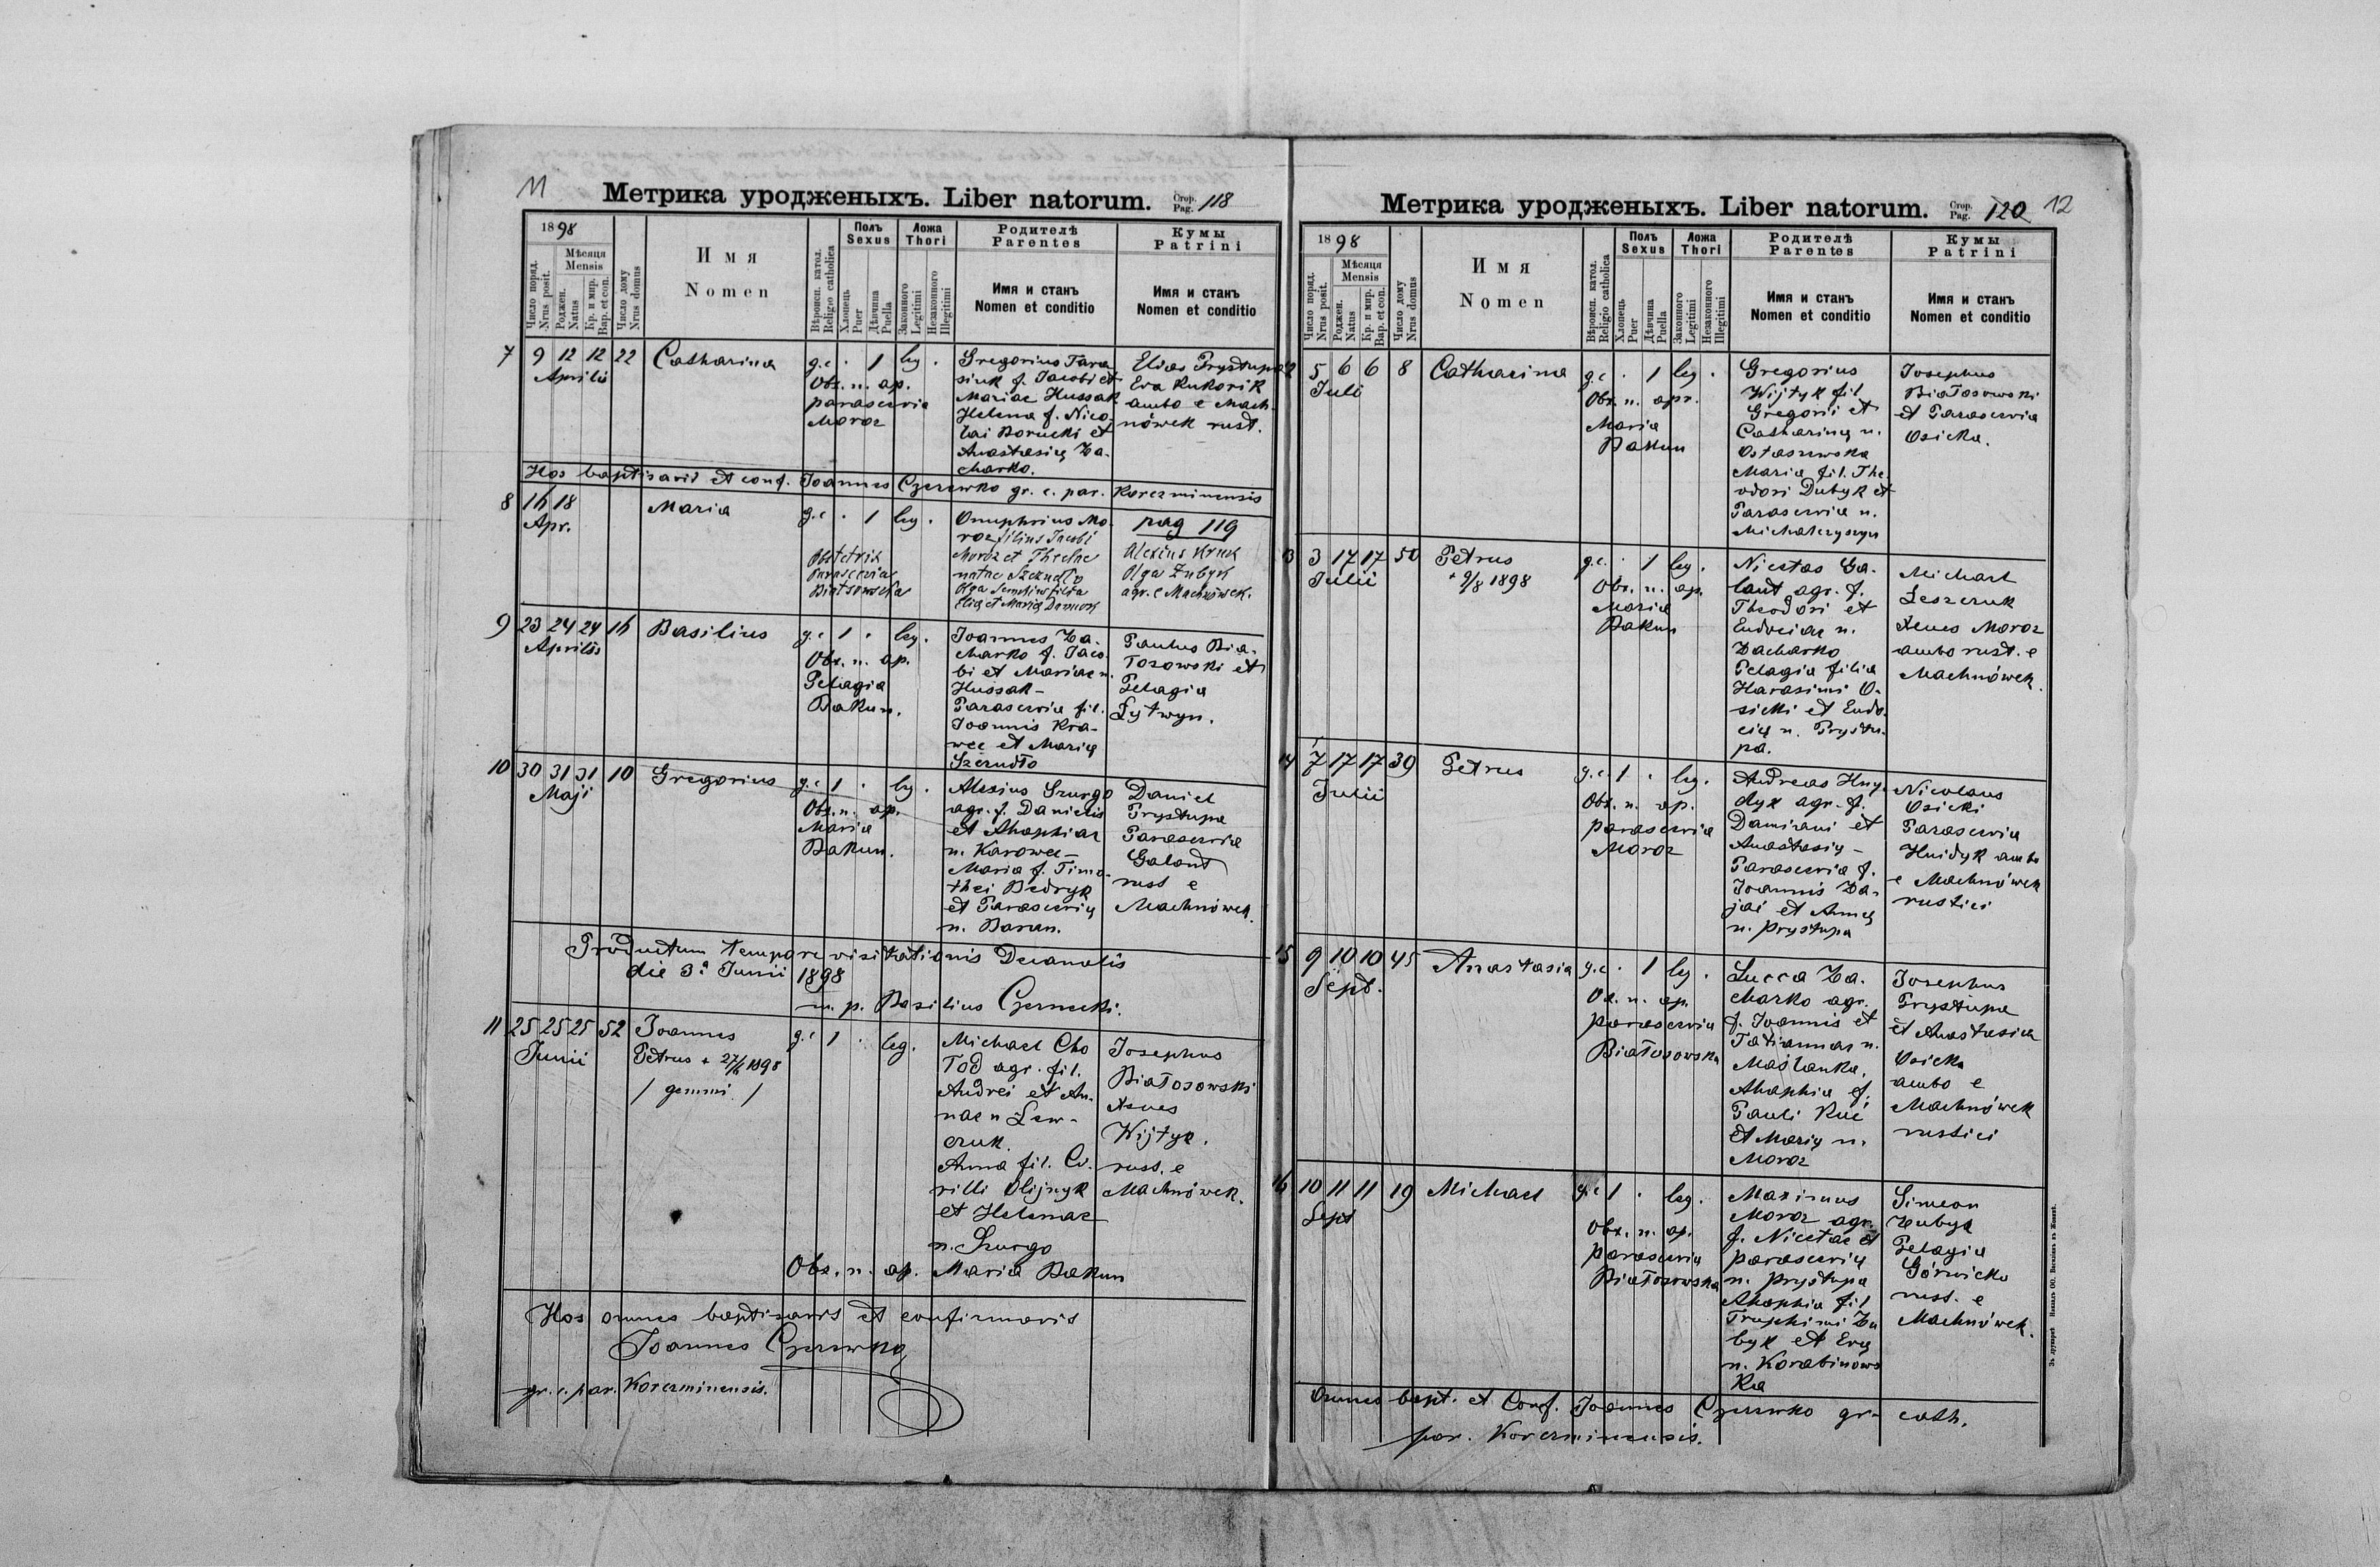 11
Метрика уродженыхъ. Liber natorum. Стор. Pag. 118
1898
Число поряд. Nrus posit.
Мѣсяця Mensis
Роджен. Natus
Кр. и мир. Bap. et con.
Число дому Nrus domus
Имя Nomen
Вѣроисп. катол. Religio catholica
Полъ Sexus
Хлопець Puer
Дѣвчина Puella
Ложа Thori
Законного Legitimi
Незаконного Illegitimi
Родителѣ Parentes
Имя и станъ Nomen et conditio
Кумы Patrini
Имя и станъ Nomen et conditio
7 9 12 12 22 Catharina g.c . 1 leg .
Aprilis
Obs. n. ap.
parascevia
Moroz
Gregorius Tara
siuk f. Jacobi et
Mariae Hussak
Helena f. Nico
lai Borucki et
Anastasią Za-
charko.
Elias Prystupa
Eva Kukorik
ambo e Mach
nówek rust.
Hos baptisavit et conf. Joannes Czerewko gr. c. par. Korczminensis
8 16 18 Maria g.c . 1 leg .
Apr.
Obstetrix
Parascevia
Onuphrius Mo-
roz filius Jacobi
Moroz et Theclae
natae Szczudło
Olga
pag 119
Alexius Kruk
Olga Zubyk
agr. e Machnówek.
9 23 24 24 16 Basilius g.c 1 . leg.
Aprilis
Obs. n. ap.
Pelagia
Bakun.
Joannes Za-
charko f. Jaco
bi et Mariae n.
Hussak-
Parascevia fil.
Joannis Kra-
wec et Marią
Szczudło
Paulus Bia-
łosowski et
Pelagia
Lytwyn.
10 30 31 31 10 Gregorius g.c 1 . leg.
Maji
Obs. n. ap.
Maria
Bakun.
Alexius Szurgo
agr. f. Danielis
et Ahaphiae
n. Karowec-
Maria f. Timo-
thei Bedryk
et Parascevią
n. Baran.
Daniel
Prystupa
Parascevia
Galant
rust e
Machnówek.
Productum tempore visitationis Decanalis
die 3a Junii 1898
m. p. Basilius Czernecki.
11 25 25 25 52 Joannes g.c 1 . leg.
Junii
Petrus + 27/6 1898
/ gemini /
Michael Cho
łod agr. fil.
Andrei et An-
nae n Lew-
czuk.
Anna fil. Cy.
rilli Olijnyk
et Helenae
n. Szurgo
Josephus
Białosowski
Agnes
Wijtyk.
rust. e
Machnówek.
Obs. n. ap. Maria Bakun
Hos omnes baptisavit et confirmavit
Joannes Czerewko
gr. c. par. Korczminensis.
Метрика уродженыхъ. Liber natorum. Стор. Pag. 120 12
1898
Число поряд. Nrus posit.
Мѣсяця Mensis
Роджен. Natus
Кр. и мир. Bap. et con.
Число дому Nrus domus
Имя Nomen
Вѣроисп. катол. Religio catholica
Полъ Sexus
Хлопець Puer
Дѣвчина Puella
Ложа Thori
Законного Legitimi
Незаконного Illegitimi
Родителѣ Parentes
Имя и станъ Nomen et conditio
Кумы Patrini
Имя и станъ Nomen et conditio
5 6 6 8 Catharina g.c . 1 leg .
Juli
Obs. n. apr.
Maria
Bakun
Gregorius
Wijtyk fil
Gregorii et
Catharina n.
Ostaszewska
Maria fil. The
odori Dubyk et
Parascevia n.
Michalczyszyn
Josephus
Białosowski
et Parascevia
Osicka.
13 3 17 17 50 Petrus g.c. . 1 leg.
Julii
+ 9/8 1898
Obs. n. ap.
Maria
Bakun
Nicetas Ga-
lant agr. f.
Theodori et
Eudociae n.
Zacharko
Pelagia filia
Harasimi O-
sicki et Eudo-
cią n. Prystu-
pa.
Michael
Leszczuk
Agnes Moroz
ambo rust. e
Machnówek.
14 7 17 17 39 Petrus g.c. 1 . leg.
Julii
Obs. n. ap.
parascevia
Moroz
Andreas Hny-
dyk agr. f.
Damiani et
Anastasią -
Parascevia f.
Joannis Za-
jac et Anną
n. prystupa
Nicolaus
Osicki
Parascevia
Hnidyk ambo
e Machnówek
rustici
15 9 10 10 45 Anastasia g.c . 1 leg .
Sept.
Ob. n. ap.
parascevia
Białosowska
Lucca Za-
charko agr.
f. Joannis et
Tatiannae n.
Maślanka.
Ahaphia f.
Pauli Kuc
et Marią n.
Moroz
Josephus
Prystupa
et Anastasia
Osicka
ambo e
Machnówek
rustici
16 10 11 11 19 Michael g.c 1 . leg.
Sept
Obs. n. ap.
parascevia
Białosowska
Maximus
Moroz agr.
f. Nicetae et
parascevią
n. prystupa
Ahaphia fil
Truphimi Zu
byk et Evą
n. Korabinows
ka
Simeon
Zubyk
Pelagia
rust. e
Machnówek.
Omnes bapt. et Conf. Joannes Czerewko gr- cath.
par. Korczminensis.